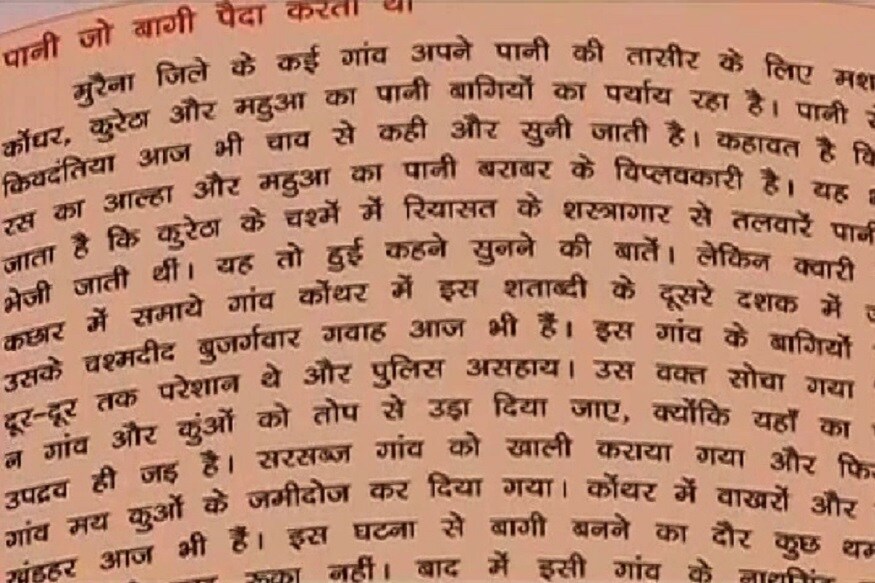 पानी जो बागी पैदा करता था
मुरैना जिले के कई गांव अपने पानी की तासीर के लिए मश
कोंथर, कुरेठा और महुआ का पानी बागियों का पर्याय रहा है। पानी
किवदंतिया आज भी चाव से कही और सुनी जाती है। कहावत है कि
रस का आल्हा और महुआ का पानी बराबर के विप्लवकारी है। यह
जाता है कि कुरेठा के चश्में में रियासत के शस्त्रागार से तलवारें पानी
भेजी जाती थीं। यह तो हुई कहने सुनने की बातें। लेकिन क्वारी
कछार में समाये गांव कोंथर में इस शताब्दी के दूसरे दशक में
उसके चश्मदीद बुजर्गवार गवाह आज भी हैं। इस गांव के बागियों
दूर-दूर तक परेशान थे और पुलिस असहाय। उस वक्त सोचा गया
न गांव और कुंओं को तोप से उड़ा दिया जाए, क्योंकि यहाँ का
उपद्रव ही जइ है। सरसब्ज गांव को खाली कराया गया और फिर
गांव मय कुओं के जमीदोज कर दिया गया। कोंथर में वाखरों और
खंडहर आज भी हैं। इस घटना से बागी बनने का दौर कुछ थम
रुका नहीं। बाद में इसी गांव के